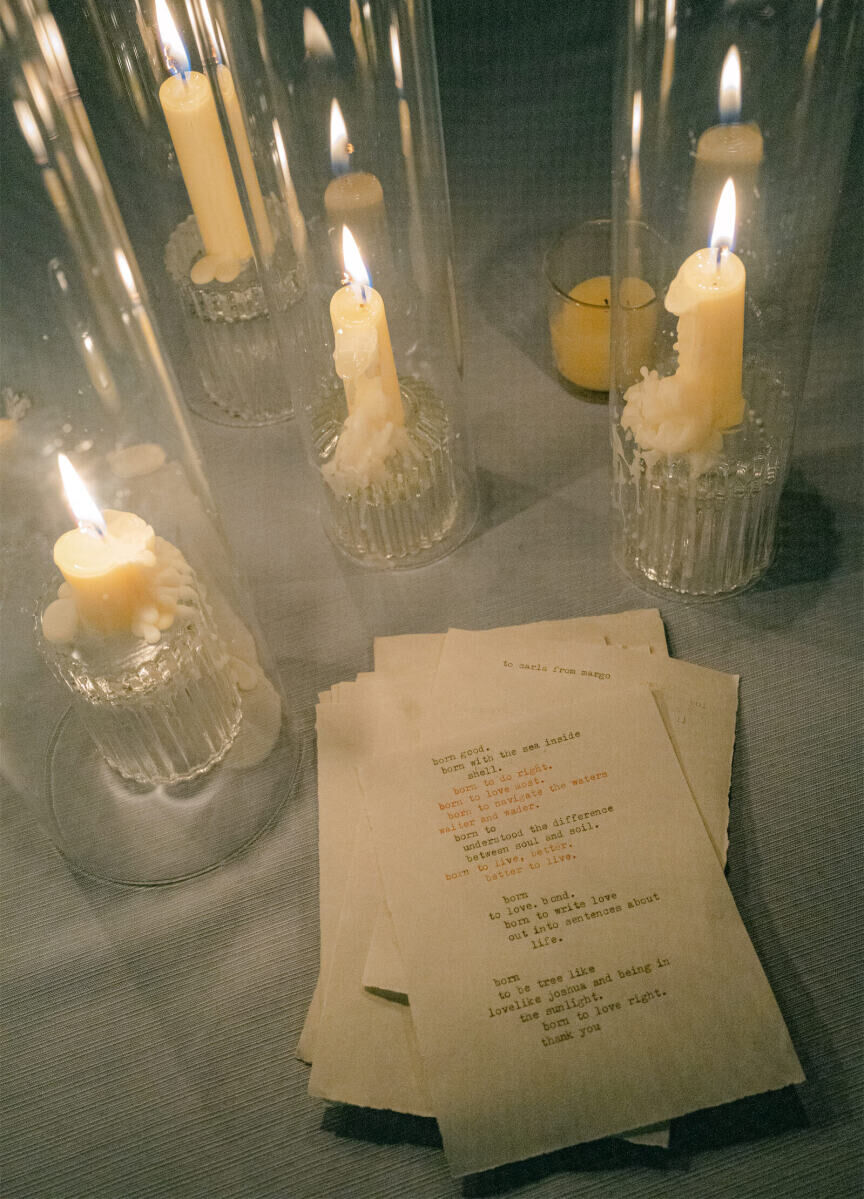 to carla from margo
born good.
born with the sea inside
shell.
born to do right.
born to love most.
born to navigate the waters
walter and wader.
born to
understood the difference
between soul and soil.
born to live, better.
better to live.
born
to love. bond.
born to write love
out into sentences about
life.
born
to be tree like
lovelike joshua and being in
the sunlight.
born to love right.
thank you